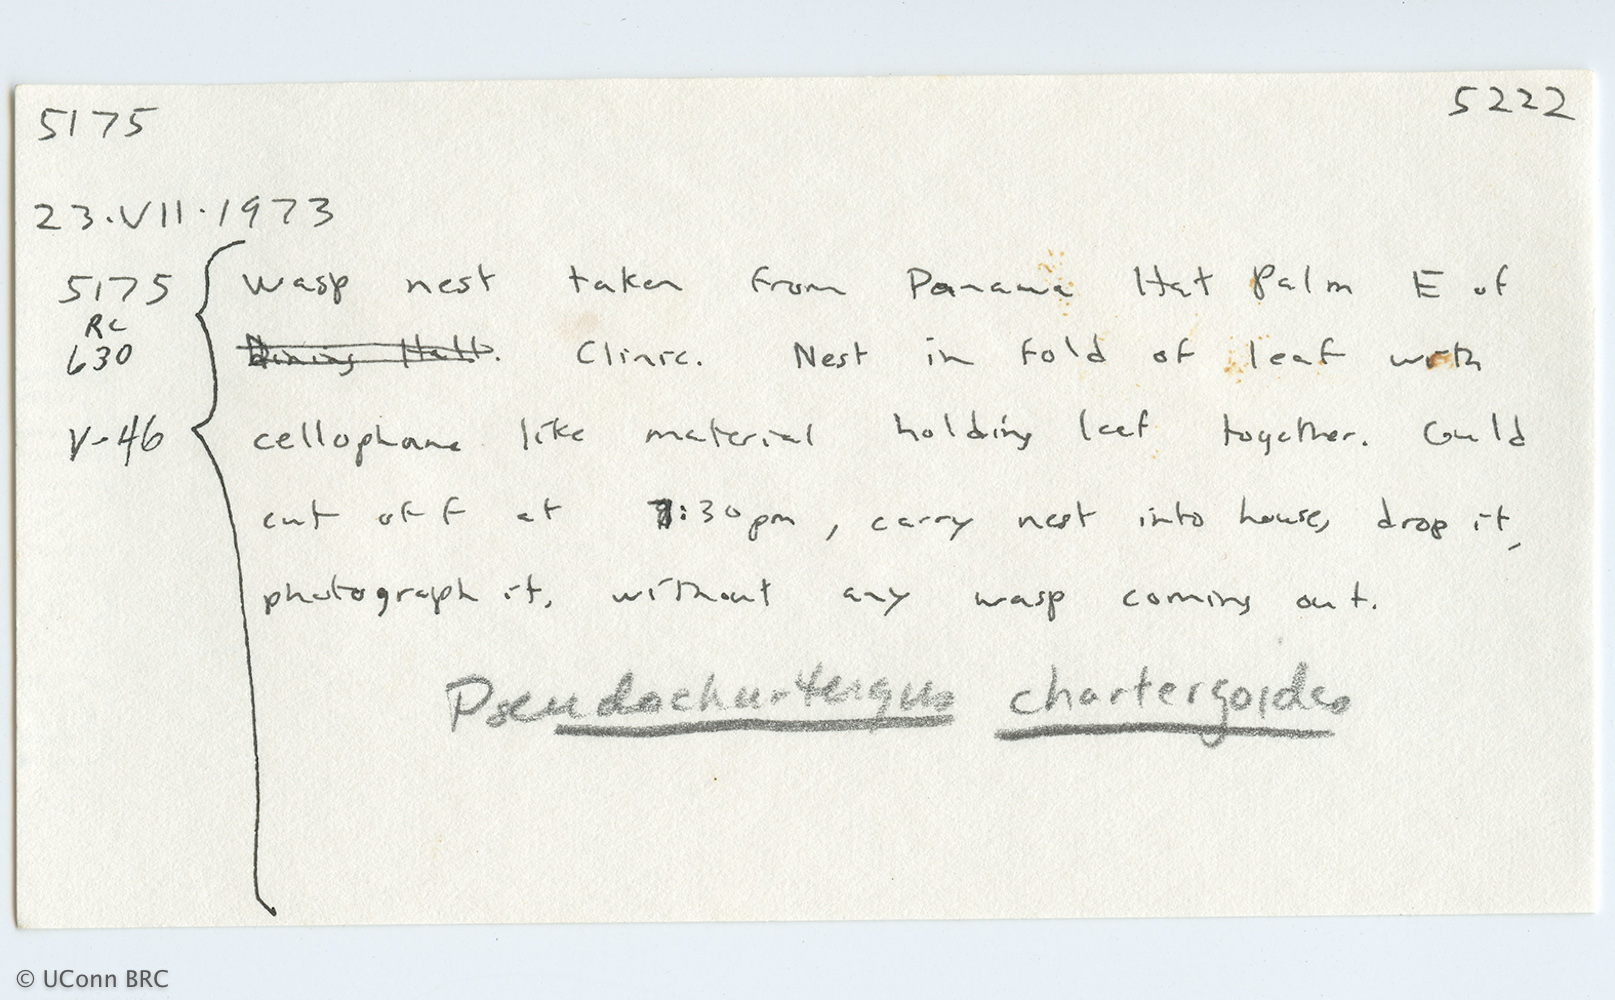 5175 5222
23.VII.1973
5175 Wasp nest taken from Panama Hat Palm E of
RC
630 Dining Hall. Clinic. Nest in fold of leaf with
V-46 cellophane like material holding leaf together. Could
cut off at 7:30pm, carry nest into house, drop it,
photograph it, without any wasp coming out.
Pseudochartergus chartergoides
© UConn BRC